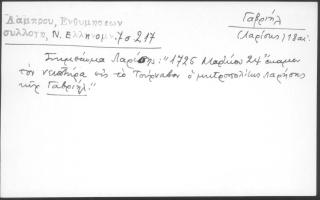 Λάμπρου, Ενθυμήσεων
συλλογή, Ν. Ελληνομν. 7 σ 217
Γαβριήλ
(Λαρίσης) 18 αι.
Σημείωμα Λαρίσης: "1726 Μαρτίου 24 έκαμεν
τον νιπτήρα εις το Τούρναβον ο μητροπολίτης Λαρίσης
κύρ Γαβριήλ."